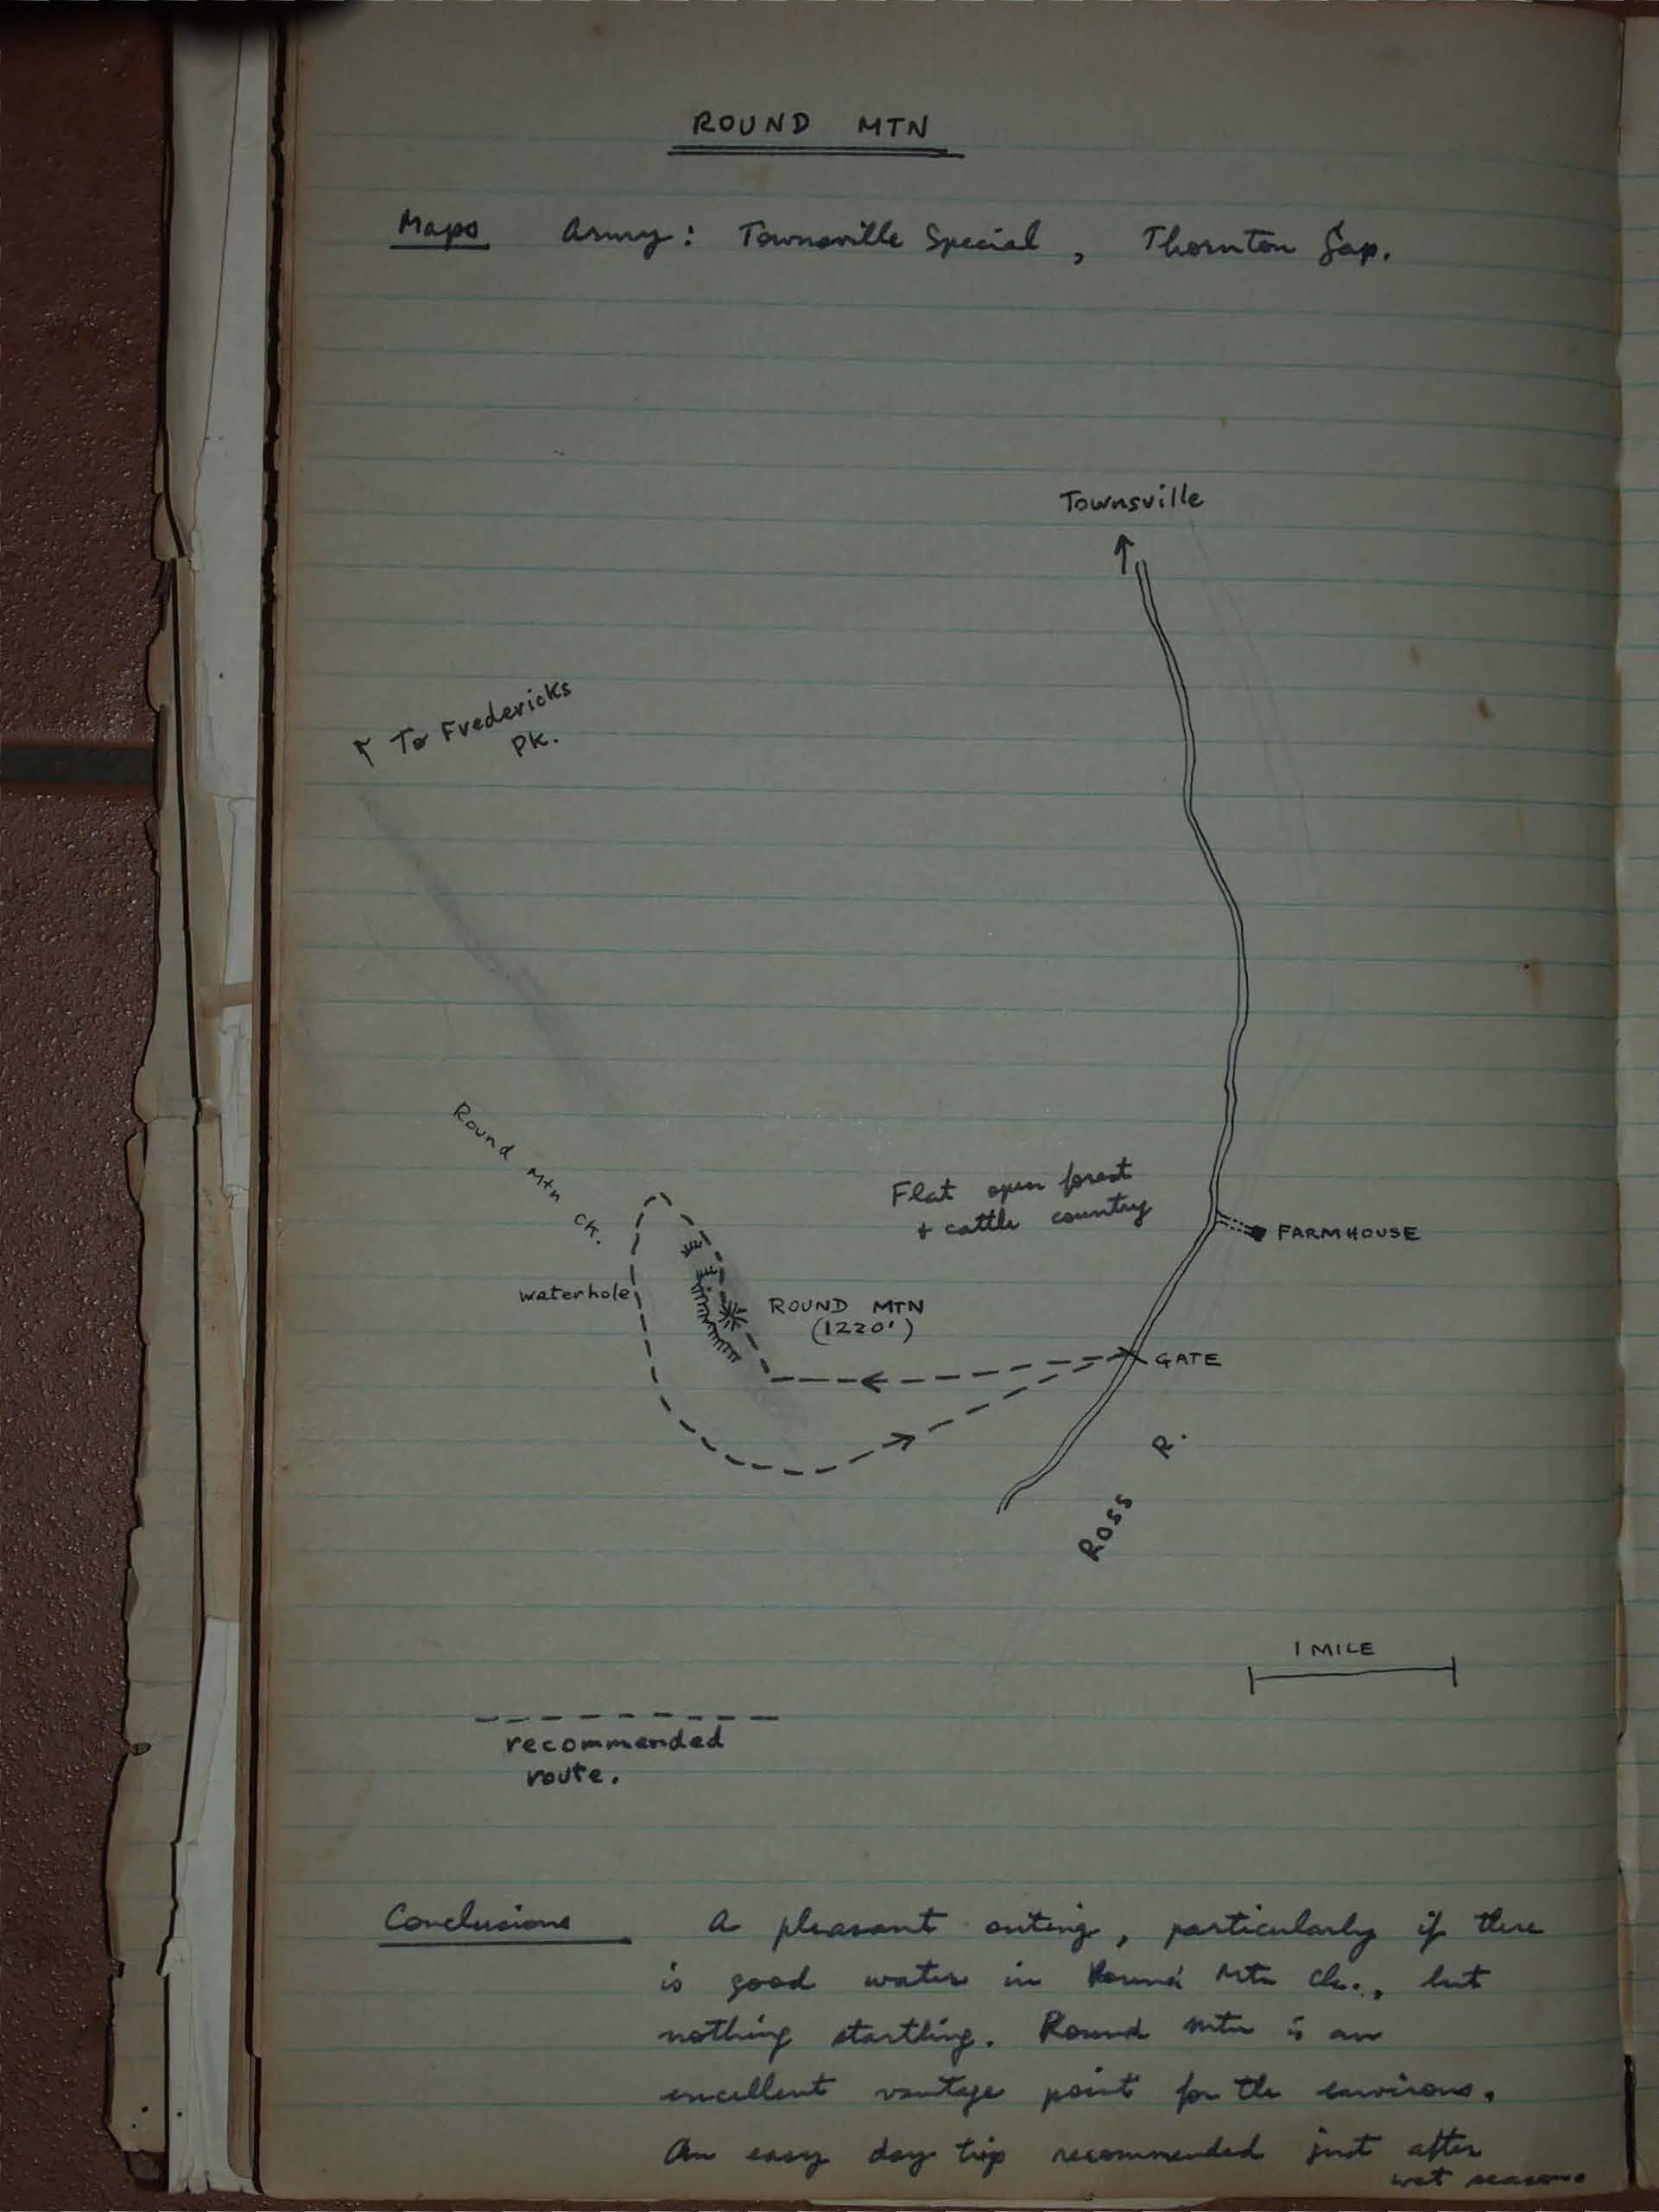 ROUND MTN
Maps Army: Townsville Special, Thornton Gap.
Townsville
To Fredericks
Pk.
Round Mtn Ck.
Flat open forest
+ cattle country
FARMHOUSE
waterhole
ROUND MTN
(1220')
GATE
ROSS R.
1 MILE
recommended
route.
Conclusions A pleasant outing, particularly if there
is good water in Round Mtn Ck., but
nothing startling. Round Mtn is an
excellent vantage point for the environs.
An easy day trip recommended just after
wet season.